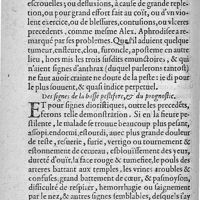 escrouelles; ou defluxiõs, à cause de grande reple-
tion, ou pour grand effort fait au coït, ou d'vn vio-
lent exercice, ou de blessures, contusions, ou vlceres
precedents: comme mesme Alex. Aphrodisee a re-
marqué par ses problemes. Que s'il aduient quelque
tumeur, enfleure, clou, furoncle, aposteme en autre
lieu, ou hors mis les trois susdits emundoires, & qui
n'aient signes d'anthrax (duquel parlerons tantost)
ne faut auoir crainte ne doute de la peste: ie di pour
le plus souuent, & quasi indice perpetuel.
Des signes de la bosse pestifere, & du prognostic.
ET pour signes dioristiques, outre les precedẽts,
ferons telle demonstration. Si en la fieure pe-
stilente, le malade se trouue beaucoup plus pesant,
assopi, endormi, estourdi, auec plus grande douleur
de teste, resuerie, furie, vertigo ou tournement &
estonnement de cerueau, esblouïssement des yeux,
dureté d'ouïr, la face rouge & tumefiee, le pouls des
arteres battant aux temples, les vrines troubles &
confuses, grand battement de cœur, & palmoysõn,
difficulté de respirer, hemorrhagie ou saignement
par le nez, & autres signes semblables, desquels s'ay